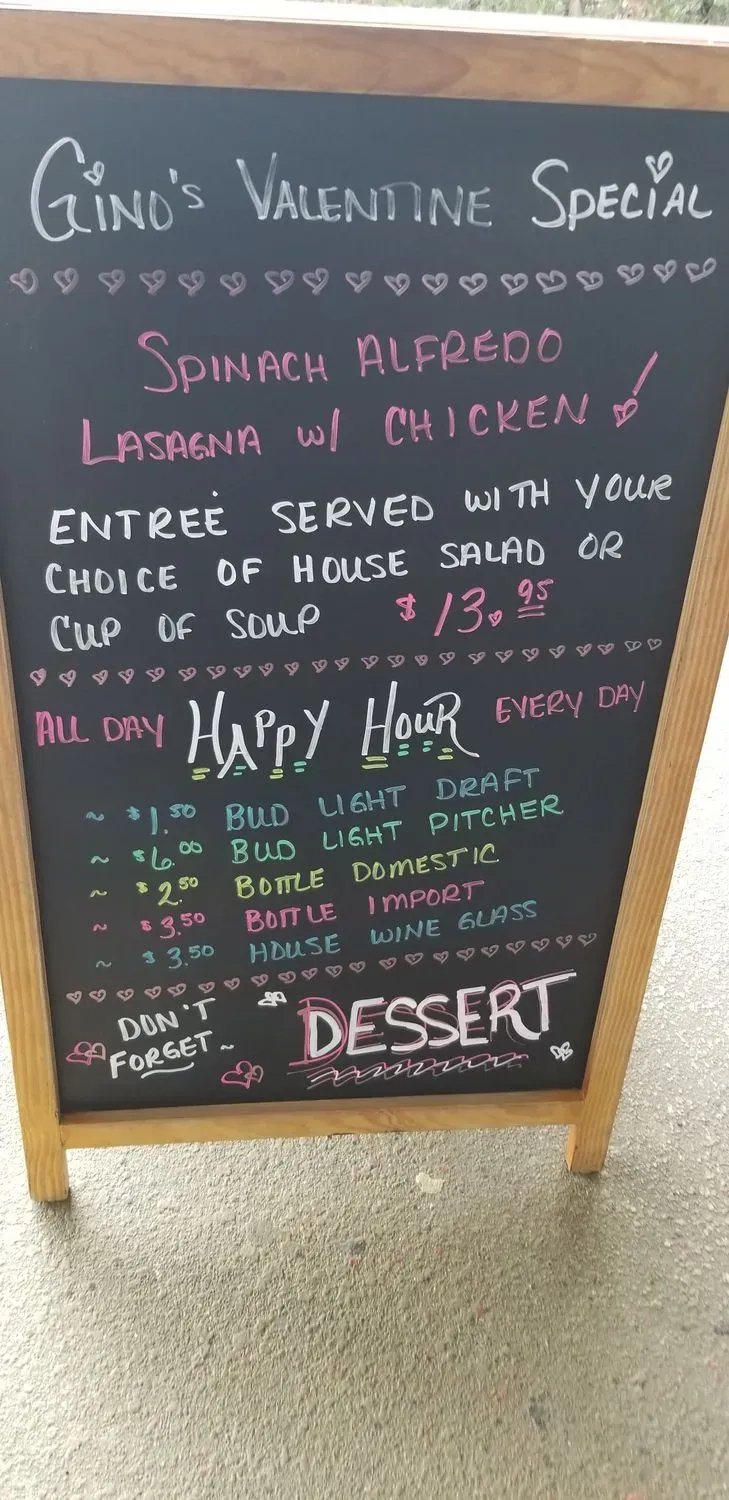 GINO'S VALENTINE SPECIAL
SPINACH ALFREDO
LASAGNA W/ CHICKEN!
ENTREÉ SERVED WITH YOUR
CHOICE OF HOUSE SALAD OR
CUP OF SOUP $13.95
ALL DAY HAPPY HOUR EVERY DAY
~ $1.50 BUD LIGHT DRAFT
~ $6.00 BUD LIGHT PITCHER
~ $2.50 BOTTLE DOMESTIC
~ $3.50 BOTTLE IMPORT
~ $3.50 HOUSE WINE GLASS
DON'T
FORGET~ DESSERT